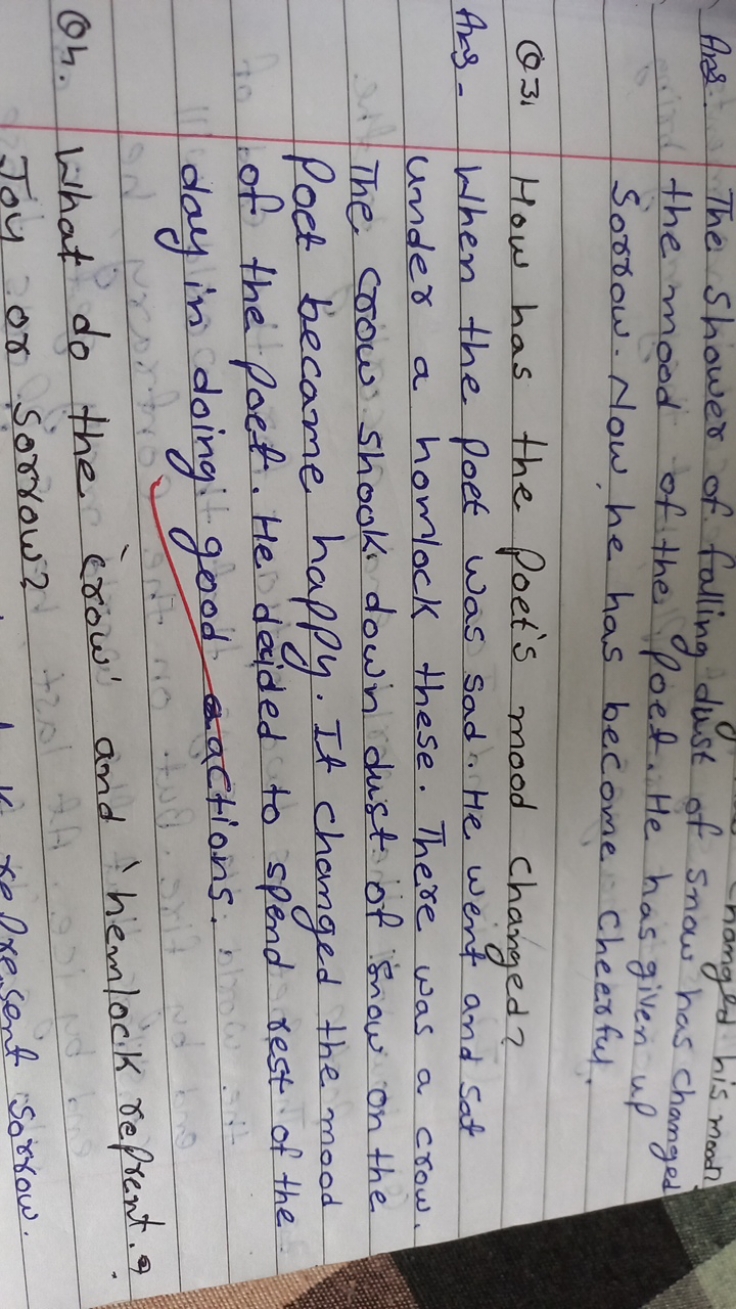 changed his mood?
Ans. The shower of falling dust of snow has changed
the mood of the poet. He has given up
Sorrow. Now, he has become cheerful.
Q3. How has the poet's mood changed?
Ans- When the poet was sad. He went and sat
under a homlock these. There was a crow.
The crow shook down dust of snow on the
poet became happy. It changed the mood
of the poet. He decided to spend rest of the
day in doing good actions.
Q4. What do the 'crow' and 'hemlock reprent.
Joy or Sorrow?
represent sorrow.